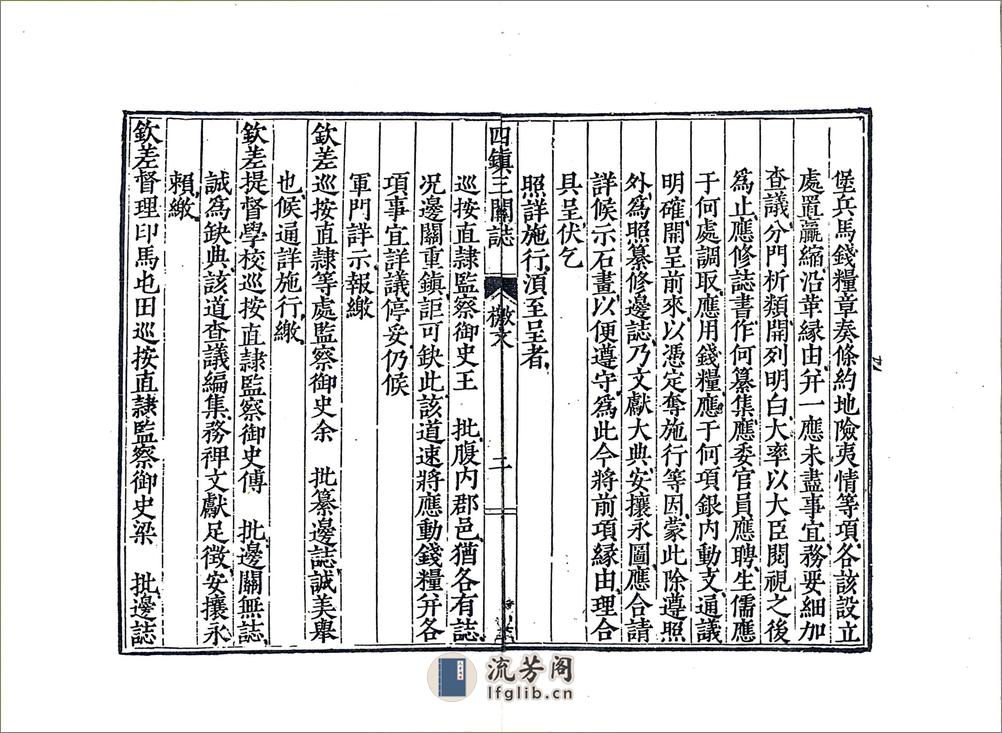 堡兵馬錢糧章奏條約地險夷情等項各該設立
處置贏縮沿革緣由幷一應未盡事宜務要細加
查議分門析類開列明白大率以大臣閱視之後
爲止應修誌書作何纂集應委官員應聘生儒應
于何處調取應用錢糧應于何項銀內動支通議
明確開呈前來以憑定奪施行等因蒙此除遵照
外爲照纂修邊誌乃文獻大典安攘永圖應合請
詳候示石畫以便遵守爲此今將前項緣由理合
具呈伏乞
照詳施行須至呈者
四鎮三關誌 檄文 二
巡按直隷監察御史王 批腹內郡邑猶各有誌
況邊關重鎮詎可缺此該道速將應動錢糧幷各
項事宜詳議停妥仍候
軍門詳示報繳
欽差巡按直隷等處監察御史余 批纂邊誌誠美舉
也候通詳施行繳
欽差提督學校巡按直隷監察御史傅 批邊關無誌
誠爲缺典該道查議編集務裨文獻足徵安攘永
賴繳
欽差督理印馬屯田巡按直隷監察御史梁 批邊誌
流芳阁
lfglib.cn